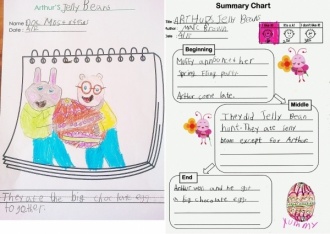 Arthur's Jelly Beans
Name
Date:
They are the big chocolate egg
together.
Summary Chart
Title: ARTHUR's Jelly Beans
Author: Marc Brown
It's ok
I don't like it
Beginning
Spring Fling party
Arthur came late.
Middle
They did Jelly Bean
hunt. They ate Jelly
bean except for Arthur
End
Arthur won and he got
a big chocolate egg.
YUMMY